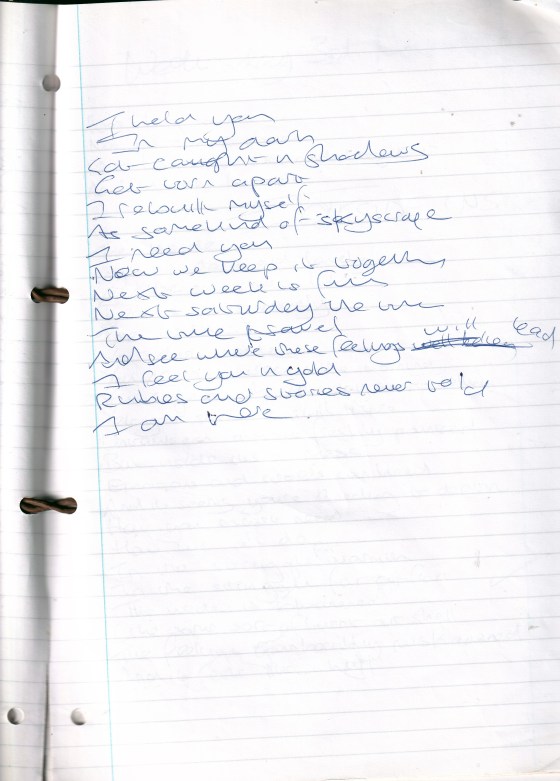 I held you
In my arms
Got caught in shadows
Got torn apart
I rebuilt myself
As some kind of skyscrape
I need you
Now we keep it together
Next week is fine
Next saturday the
The time
And see where these feelings will lead
I feel you in gold
Rubies and stories never told
I am here.